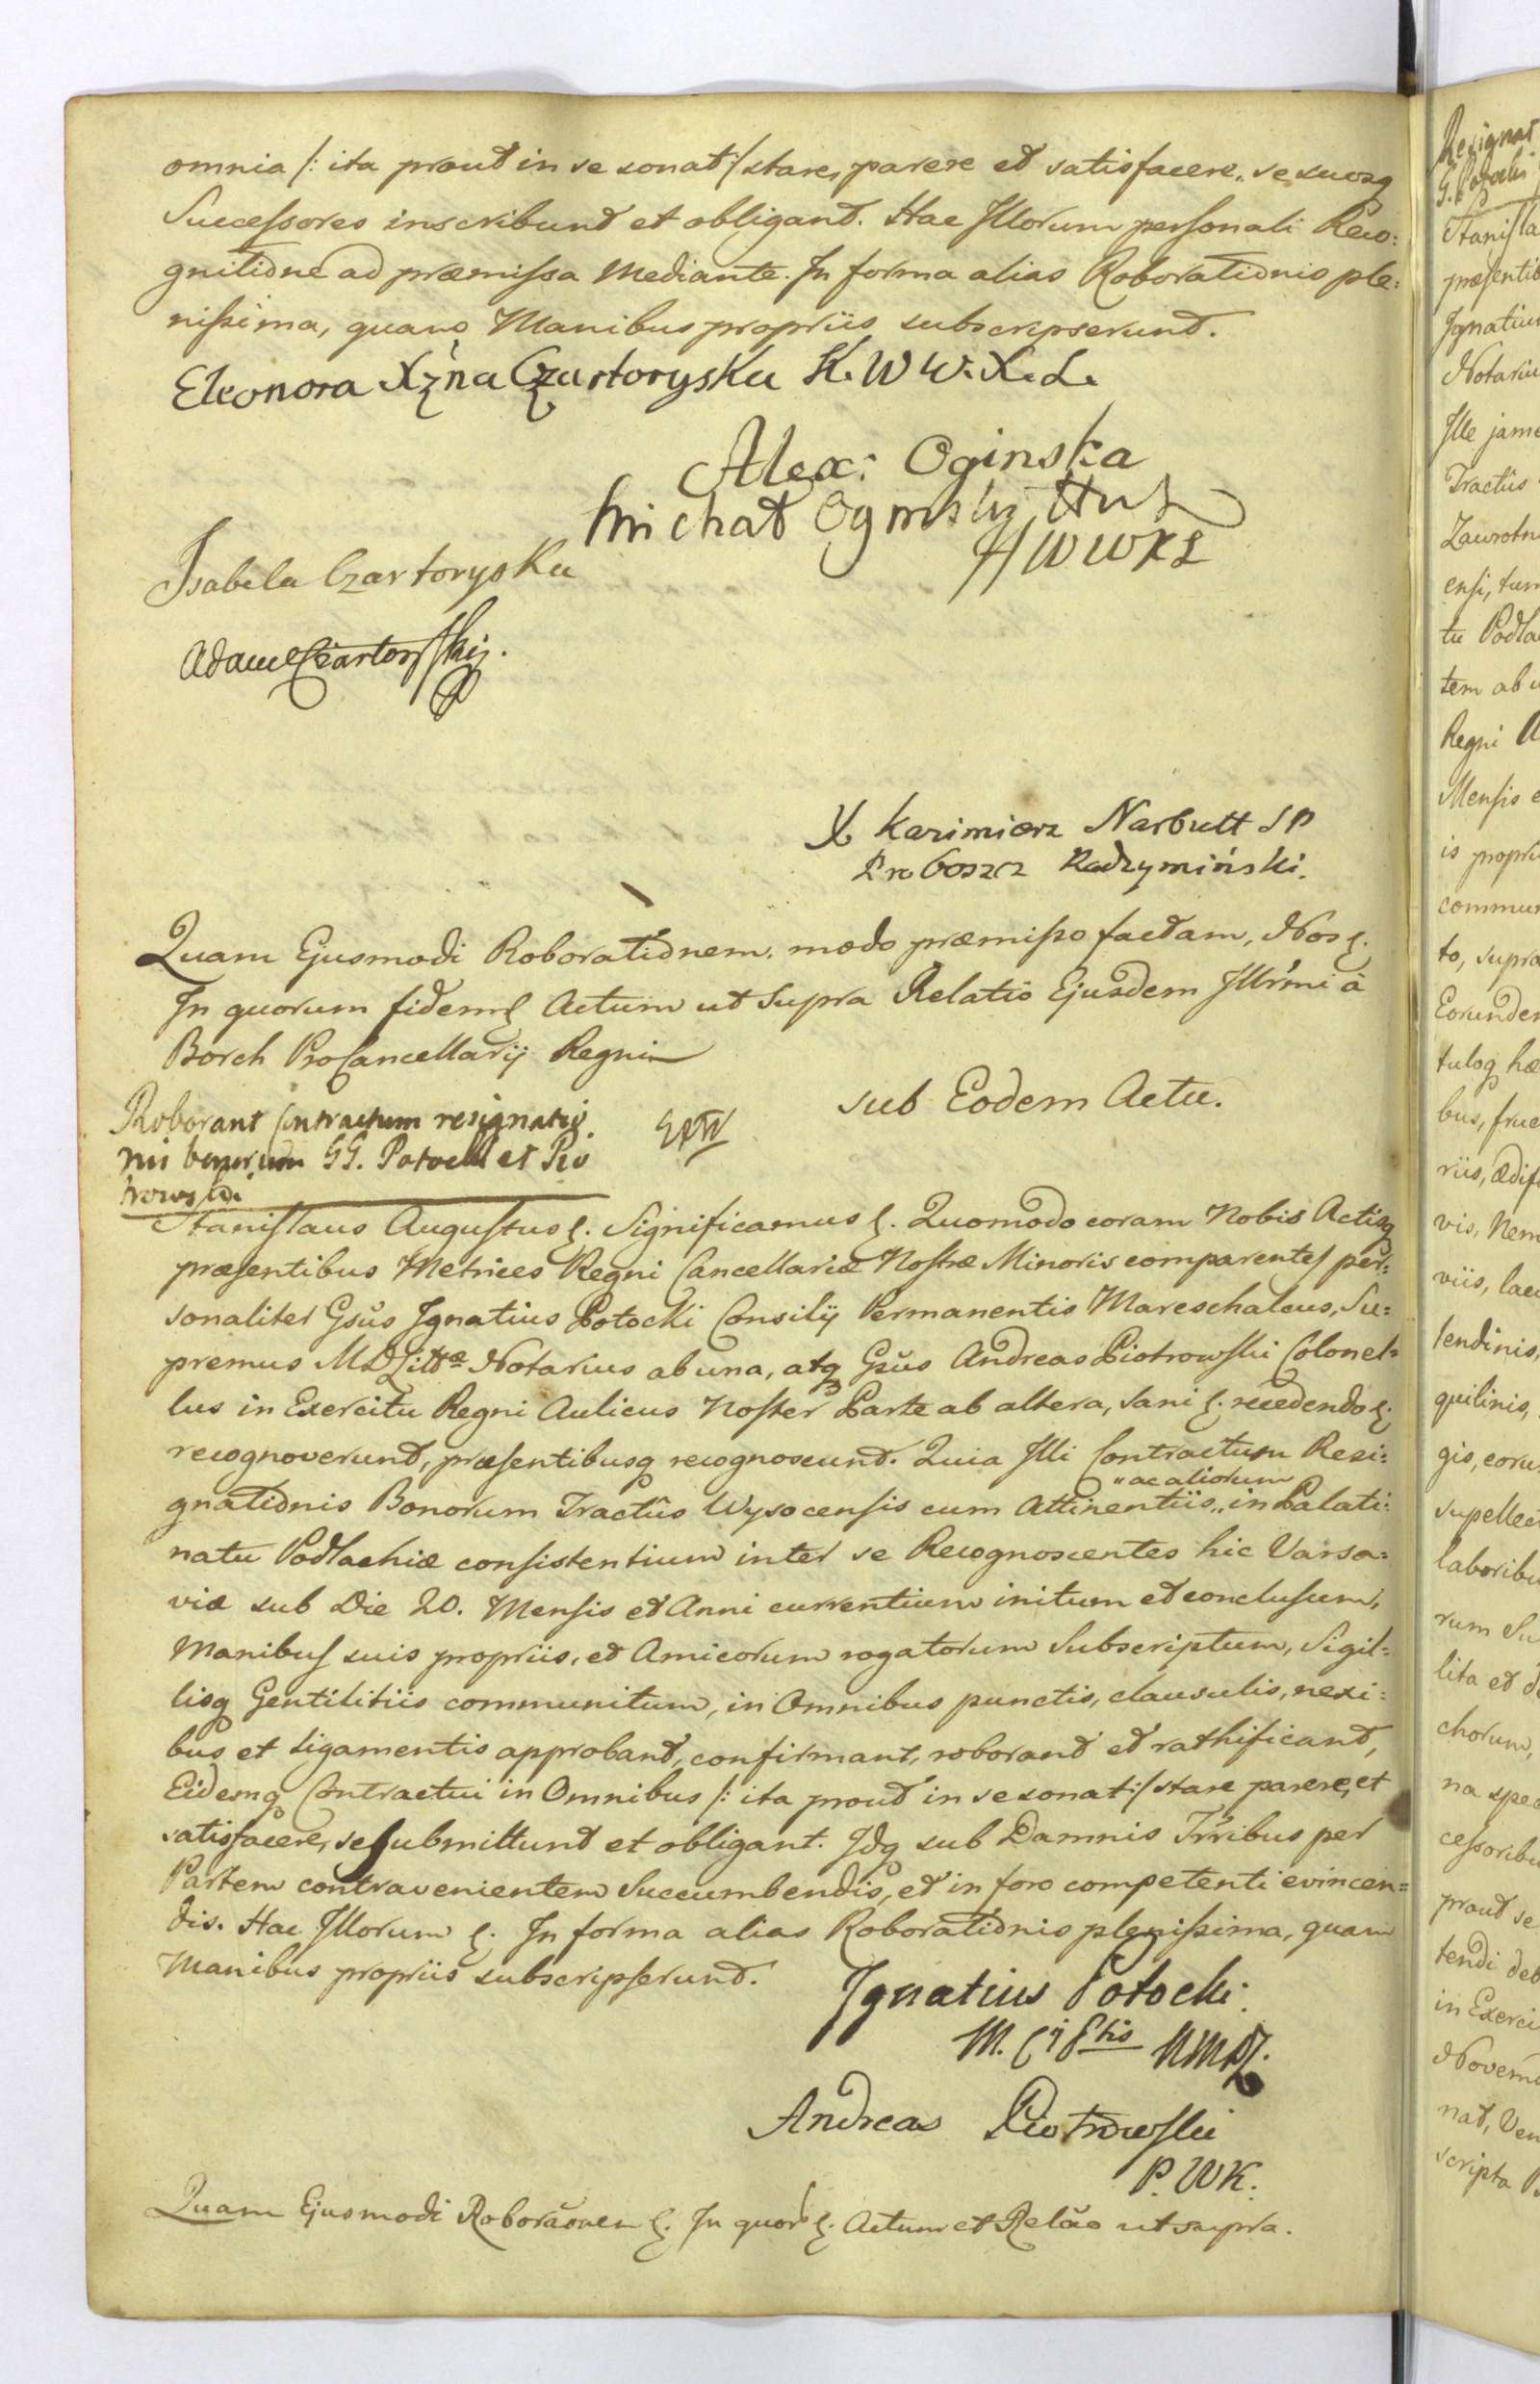 omnia /: ita prout in se sonat :/ stare, parere et satisfacere, se suosq
Successores inscribunt et obligant. Hac Illorum personali Reco:
gnitione ad præmissa Mediante. In forma alias Roborationis ple:
nissima, quam Manibus propriis subscripserunt.
Eleonora Xżna Czartoryska K. W W. X. L.
Alex: Oginska
Michał Oginski
H W W X L
Isabela Czartoryska
Adam Czartoryski.
X Kazimierz Narbutt SP
Proboszcz Radzymiński.
Quam Ejusmodi Roborationem, modo præmisso factam, Nos &.
In quorum fidem & Actum ut Supra Relatio Ejusdem Illrmi à
Borch ProCancellarij Regni
sub Eodem Actu.
Roborant Contractum resignatio
nis bonorum GG. Potocki et Pio
trowski
Stanislaus Augustus &. Significamus &. Quomodo coram Nobis Actisq
præsentibus Metrices Regni Cancellariæ Nostræ Minoris comparentes per:
sonaliter Gsus Ignatius Potocki Consilij Permanentis Mareschalcus, Su=
premus MDLittæ Notarius ab una, atq Gsus Andreas Piotrowski Colonel=
lus in Exercitu Regni Aulicus Noster Parte ab altera, sani &. recedendo &.
recognoverunt, præsentibusq recognoscunt. Quia Illi Contractum Resi:
gnationis Bonorum Tractûs Wysocensis cum Attinentiis "ac aliorum" in Palati:
natu Podlachiæ consistentium inter se Recognoscentes hic Varsa=
viæ sub Die 20. Mensis et Anni currentium initum et conclusum,
Manibus suis propriis, et Amicorum rogatorum Subscriptum, Sigil=
lisq Gentilitiis communitum, in Omnibus punctis, clausulis, nexi:
bus et ligamentis approbant, confirmant, roborant et rathificant,
Eidemq Contractui in Omnibus /: ita prout in se sonat :/ stare parere, et
satisfacere, se submittunt et obligant. Idq sub Damnis Trribus per
Partem contravenientem Succumbendis, et in foro competenti evincen=
dis. Hac Illorum &. In forma alias Roborationis plenissima, quam
Manibus propriis subscripserunt.
Ignatius Potocki.
Andreas Piotrowski
P. WK.
Quam Ejusmodi Roboraonem &. In quor &. Actum et Relao ut supra.